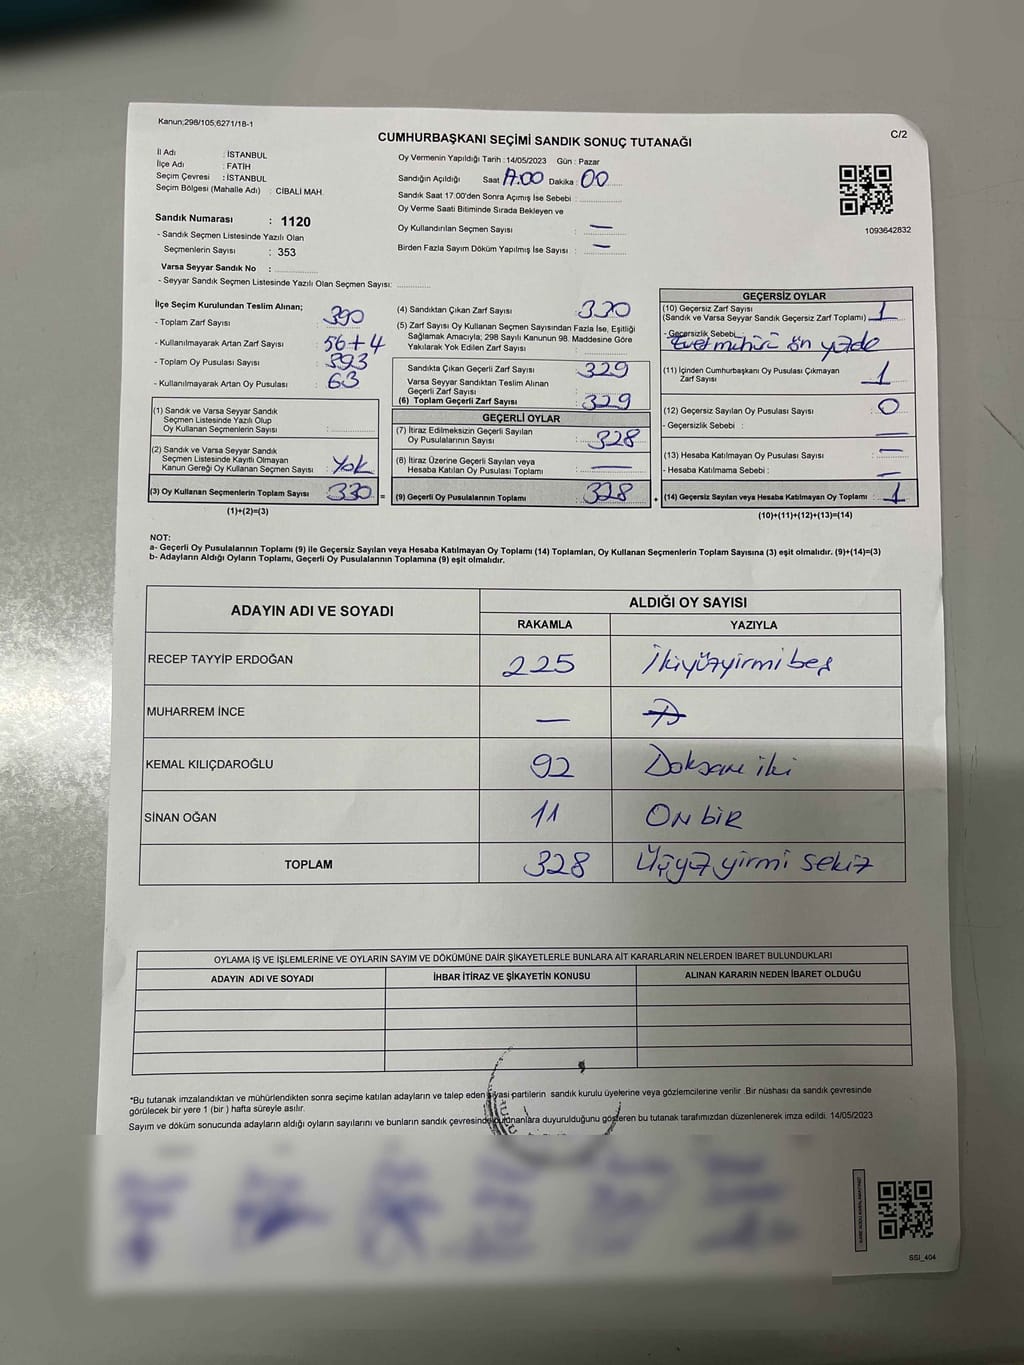 Kanun;298/105,6271/18-1
C/2
CUMHURBAŞKANI SEÇİMİ SANDIK SONUÇ TUTANAĞI
İl Adı : İSTANBUL
İlçe Adı : FATİH
Seçim Çevresi : İSTANBUL
Seçim Bölgesi (Mahalle Adı) : CİBALİ MAH.
Sandık Numarası : 1120
- Sandık Seçmen Listesinde Yazılı Olan
Seçmenlerin Sayısı : 353
Varsa Seyyar Sandık No :
- Seyyar Sandık Seçmen Listesinde Yazılı Olan Seçmen Sayısı:
Oy Vermenin Yapıldığı Tarih : 14/05/2023 Gün : Pazar
Sandığın Açıldığı Saat 17.00 Dakika : 00
Sandık Saat 17.00'den Sonra Açımış İse Sebebi :
Oy Verme Saati Bitiminde Sırada Bekleyen ve
Oy Kullandırılan Seçmen Sayısı : —
Birden Fazla Sayım Döküm Yapılmış İse Sayısı : —
1093642832
İlçe Seçim Kurulundan Teslim Alınan;
- Toplam Zarf Sayısı : 390
- Kullanılmayarak Artan Zarf Sayısı : 56+4
- Toplam Oy Pusulası Sayısı : 393
- Kullanılmayarak Artan Oy Pusulası : 63
(1) Sandık ve Varsa Seyyar Sandık
Seçmen Listesinde Yazılı Olup
Oy Kullanan Seçmenlerin Sayısı :
(2) Sandık ve Varsa Seyyar Sandık
Seçmen Listesinde Kayıtlı Olmayan
Kanun Gereği Oy Kullanan Seçmen Sayısı : Yok
(3) Oy Kullanan Seçmenlerin Toplam Sayısı : 330 =
(1)+(2)=(3)
(4) Sandıktan Çıkan Zarf Sayısı : 330
(5) Zarf Sayısı Oy Kullanan Seçmen Sayısından Fazla İse, Eşitliği
Sağlamak Amacıyla; 298 Sayılı Kanunun 98. Maddesine Göre
Yakılarak Yok Edilen Zarf Sayısı :
Sandıkta Çıkan Geçerli Zarf Sayısı : 329
Varsa Seyyar Sandıktan Teslim Alınan
Geçerli Zarf Sayısı :
(6) Toplam Geçerli Zarf Sayısı : 329
GEÇERLİ OYLAR
(7) İtiraz Edilmeksizin Geçerli Sayılan
Oy Pusulalarının Sayısı : 328
(8) İtiraz Üzerine Geçerli Sayılan veya
Hesaba Katılan Oy Pusulası Toplamı : —
(9) Geçerli Oy Pusulalarının Toplamı : 328
GEÇERSİZ OYLAR
(10) Geçersiz Zarf Sayısı
(Sandık ve Varsa Seyyar Sandık Geçersiz Zarf Toplamı) : 1
- Geçersizlik Sebebi:
Evet mühürü ön yüzde
(11) İçinden Cumhurbaşkanı Oy Pusulası Çıkmayan
Zarf Sayısı : 1
(12) Geçersiz Sayılan Oy Pusulası Sayısı : 0
- Geçersizlik Sebebi : —
(13) Hesaba Katılmayan Oy Pusulası Sayısı : —
- Hesaba Katılmama Sebebi : —
(14) Geçersiz Sayılan veya Hesaba Katılmayan Oy Toplamı : 1
(10)+(11)+(12)+(13)=(14)
NOT:
a- Geçerli Oy Pusulalarının Toplamı (9) ile Geçersiz Sayılan veya Hesaba Katılmayan Oy Toplamı (14) Toplamları, Oy Kullanan Seçmenlerin Toplam Sayısına (3) eşit olmalıdır. (9)+(14)=(3)
b- Adayların Aldığı Oyların Toplamı, Geçerli Oy Pusulalarının Toplamına (9) eşit olmalıdır.
ADAYIN ADI VE SOYADI
ALDIĞI OY SAYISI
RAKAMLA YAZIYLA
RECEP TAYYİP ERDOĞAN 225 İkiyüzyirmibeş
MUHARREM İNCE —
KEMAL KILIÇDAROĞLU 92 Doksan iki
SİNAN OĞAN 11 ON biR
TOPLAM 328 Üçyüzyirmi sekiz
OYLAMA İŞ VE İŞLEMLERİNE VE OYLARIN SAYIM VE DÖKÜMÜNE DAİR ŞİKAYETLERLE BUNLARA AİT KARARLARIN NELERDEN İBARET BULUNDUKLARI
ADAYIN ADI VE SOYADI İHBAR İTİRAZ VE ŞİKAYETİN KONUSU ALINAN KARARIN NEDEN İBARET OLDUĞU
*Bu tutanak imzalandıktan ve mühürlendikten sonra seçime katılan adayların ve talep eden siyasi partilerin sandık kurulu üyelerine veya gözlemcilerine verilir .Bir nüshası da sandık çevresinde
görülecek bir yere 1 (bir ) hafta süreyle asılır.
Sayım ve döküm sonucunda adayların aldığı oyların sayılarını ve bunların sandık çevresinde bulunanlara duyurulduğunu gösteren bu tutanak tarafımızdan düzenlenerek imza edildi. 14/05/2023
SSI_404